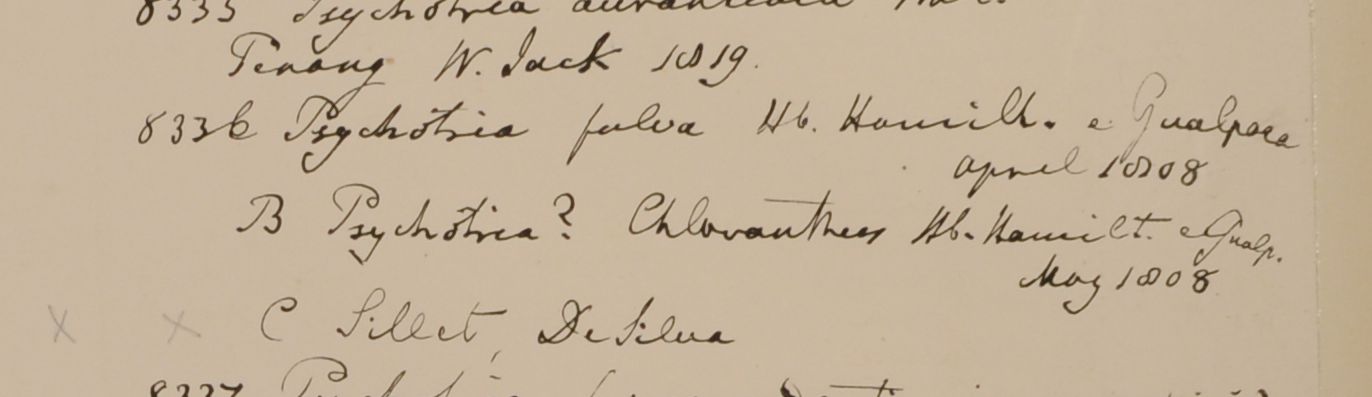 8335 Psychotria aurantiaca Wall.
Penang W. Jack 1819.
8336 Psychotria fulva Hb. Hamilt. e Gualpara
april 1808
B Psychotria? Chloranthus Hb. Hamilt. e Gualp.
May 1808
C Sillet, De Silva
8337 Psychotria